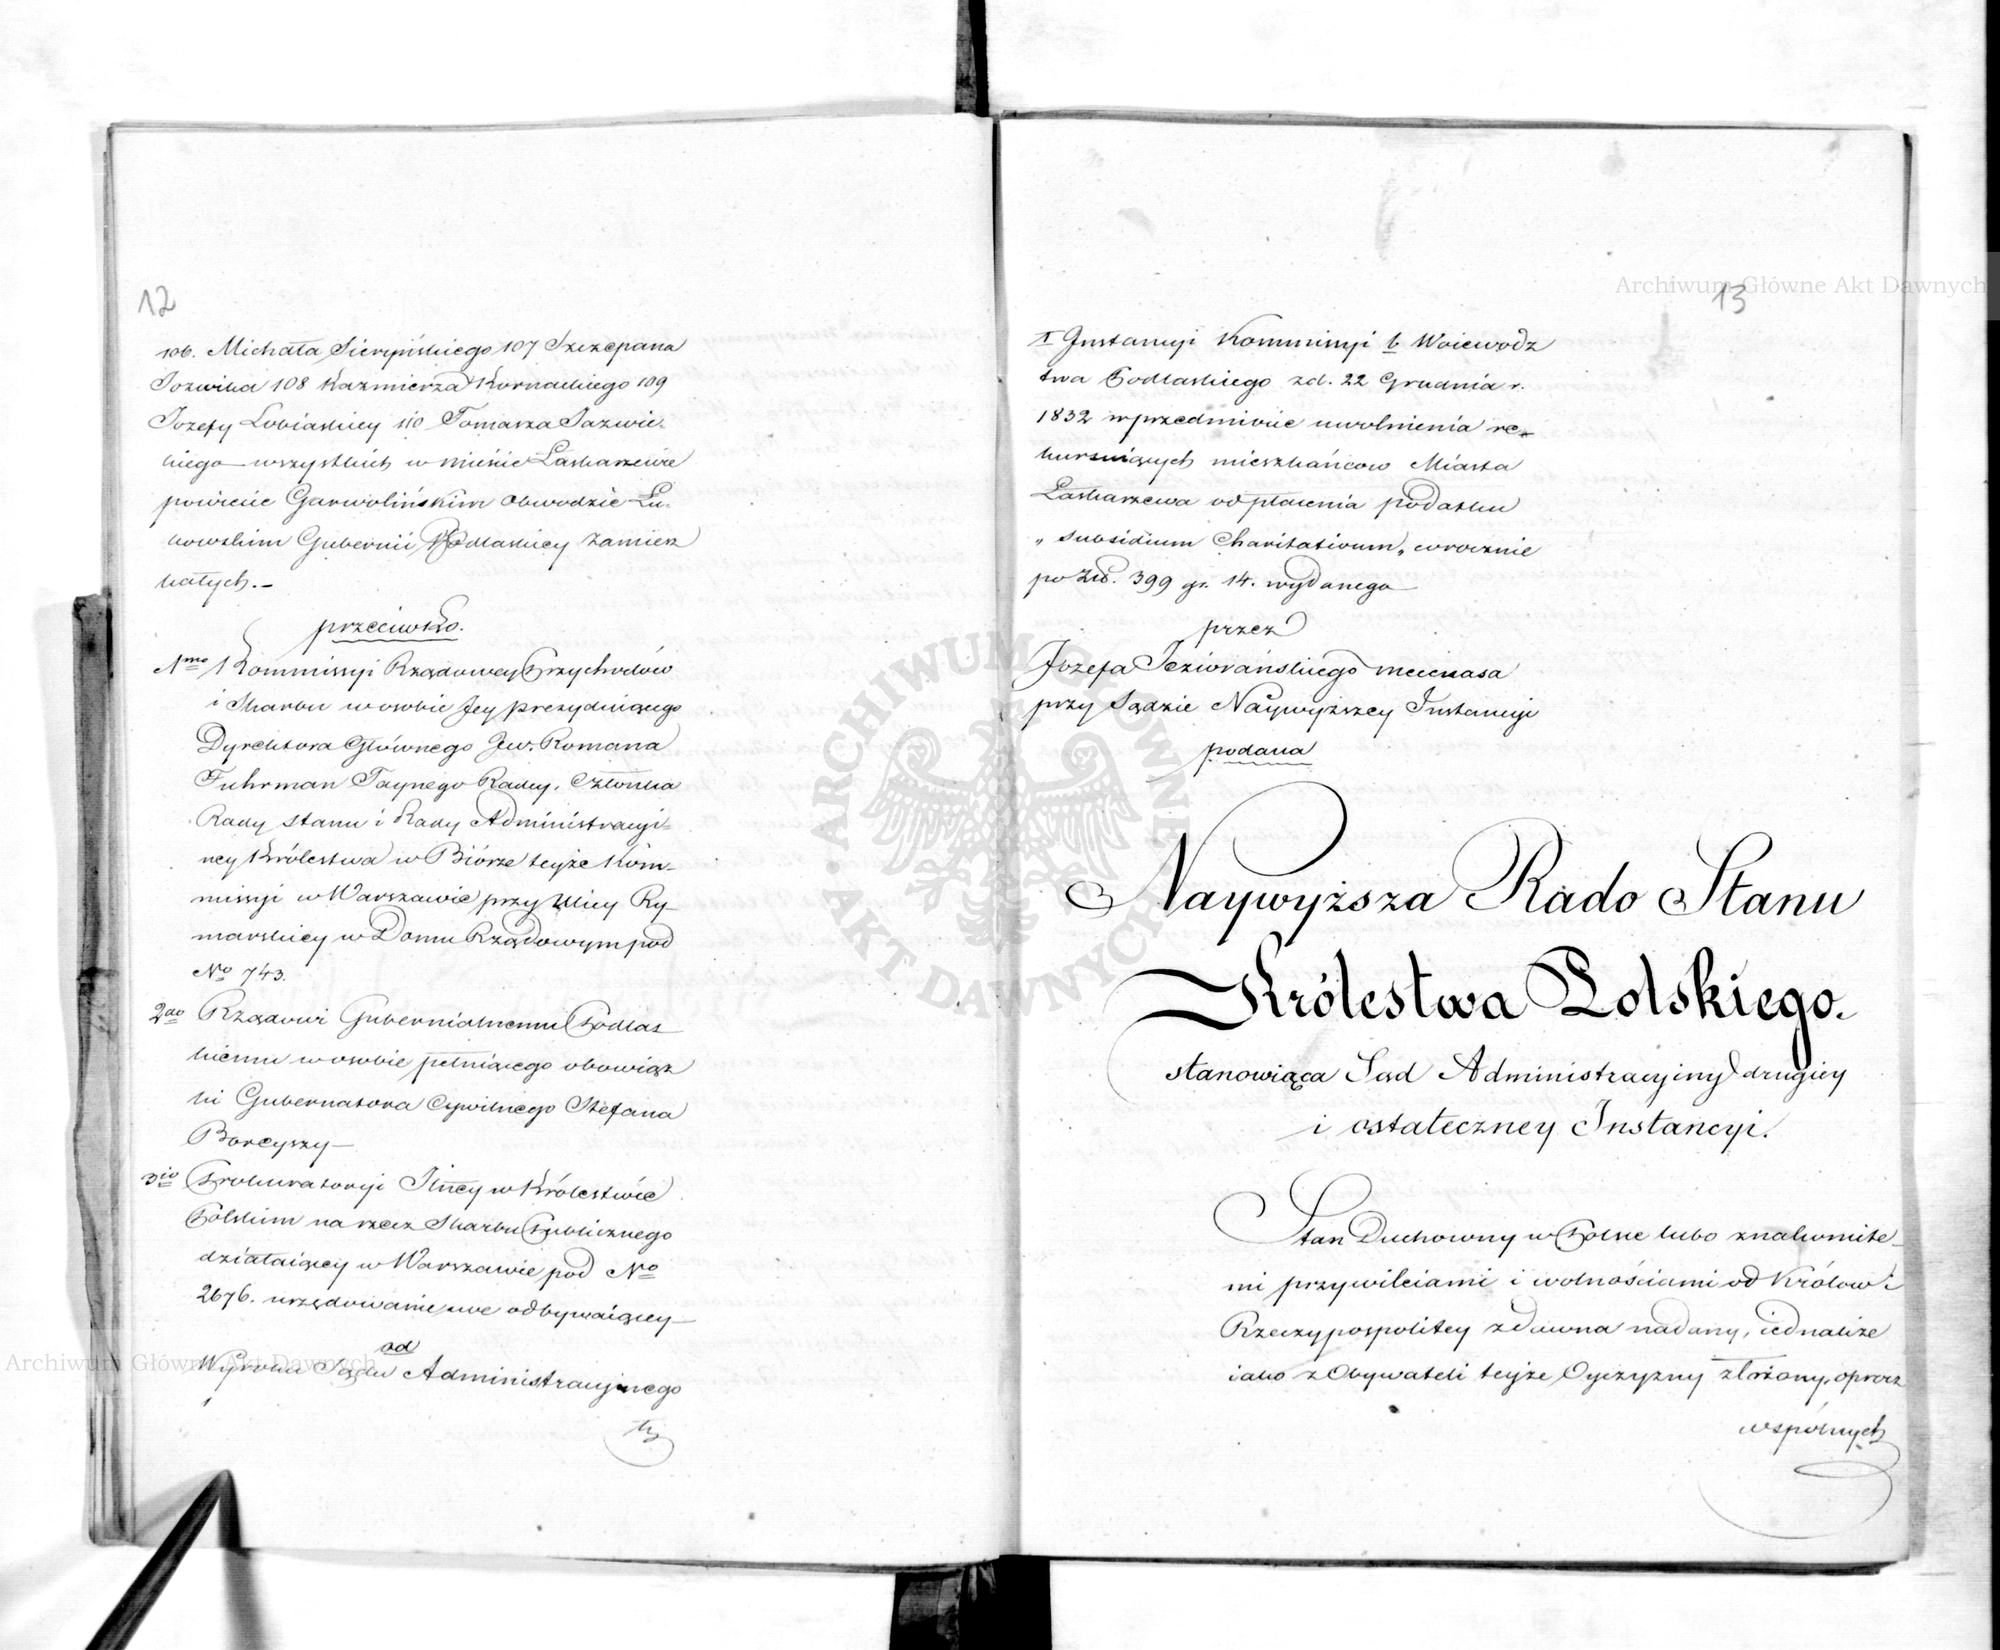 12
106. Michała Sierpińskiego 107 Szczepana
Jozwika 108 Kazmierza Kornackiego 109
Jozefy Lobiaskiey 110 Tomasza Jazwic-
kiego wszystkich w mieście Łaskarzewie
powiecie Garwolińskim Obwodzie Łu-
kowskim Gubernii Podlaskiey zamiesz
kałych.-
przeciwko.
1mo Kommissyi Rządowey Przychodów
i Skarbu w osobie Jey prezyduiącego
Dyrektora Głównego Jw. Romana
Fuhrman Taynego Radcy, Członka
Rady Stanu i Rady Administracyi-
ney Królestwa w Biórze teyże Kom-
missyi w Warszawie przy Ulicy Ry-
marskiey w Domu Rządowym pod
No 743.
2do Rządowi Gubernialnemu Podlas
kiemu w osobie pełniącego obowiąz
ki Gubernatora Cywilnego Stefana
3io Prokuratoryi Jlney w Królestwie
Polskim na rzecz Skarbu Publicznego
działaiącey w Warszawie pod No
2676. urzędowanie swe odbywaiącey
od
Wyroku Sądu Administracyjnego
13
I Instancyi Kommissyi b Woiewodz
twa Podlaskiego z d. 22 Grudnia r.
1832 w przedmiocie uwolnienia re-
kursuiących mieszkańcow Miasta
Łaskarzewa od płacenia podatku
„ Subsidium Charitativum „ corocznie
po Złt. 399 gr. 14. wydanego
przez
Jozefa Jeziorańskiego mecenasa
przy Sądzie Naywyższey Instancyi
podana
Naywyższa Rado Stanu
Królestwa Polskiego.
stanowiąca Sąd Administracyiny drugiey
i ostateczney Instancyi.
Stan Duchowny w Polsce lubo znakomite-
mi przywileiami i wolnościami od Królow i
Rzeczypospolitey zdawna nadany, iednakże
iako z Obywateli teyże Oyczyzny złożony, oprocz
wspólnych
Archiwum Główne Akt Dawnych
Archiwum Główne Akt Dawnych
ARCHIWUM GŁÓWNE AKT DAWNYCH